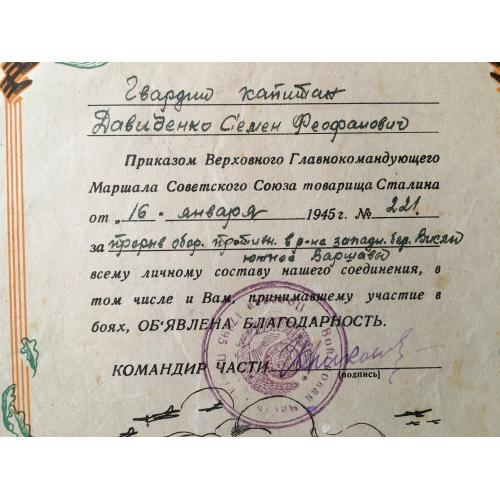 Гвардии капитан
Давиденко Семен Феофанович
Приказом Верховного Главнокомандующего
Маршала Советского Союза товарища Сталина
от „16" января 1945 г. № 221
за прорыв обор. противн. в р-не западн. бер. Вислы
южнее Варшавы
всему личному составу нашего соединения, в
том числе и Вам, принимавшему участие в
боях, ОБ'ЯВЛЕНА БЛАГОДАРНОСТЬ.
КОМАНДИР ЧАСТИ
(подпись)